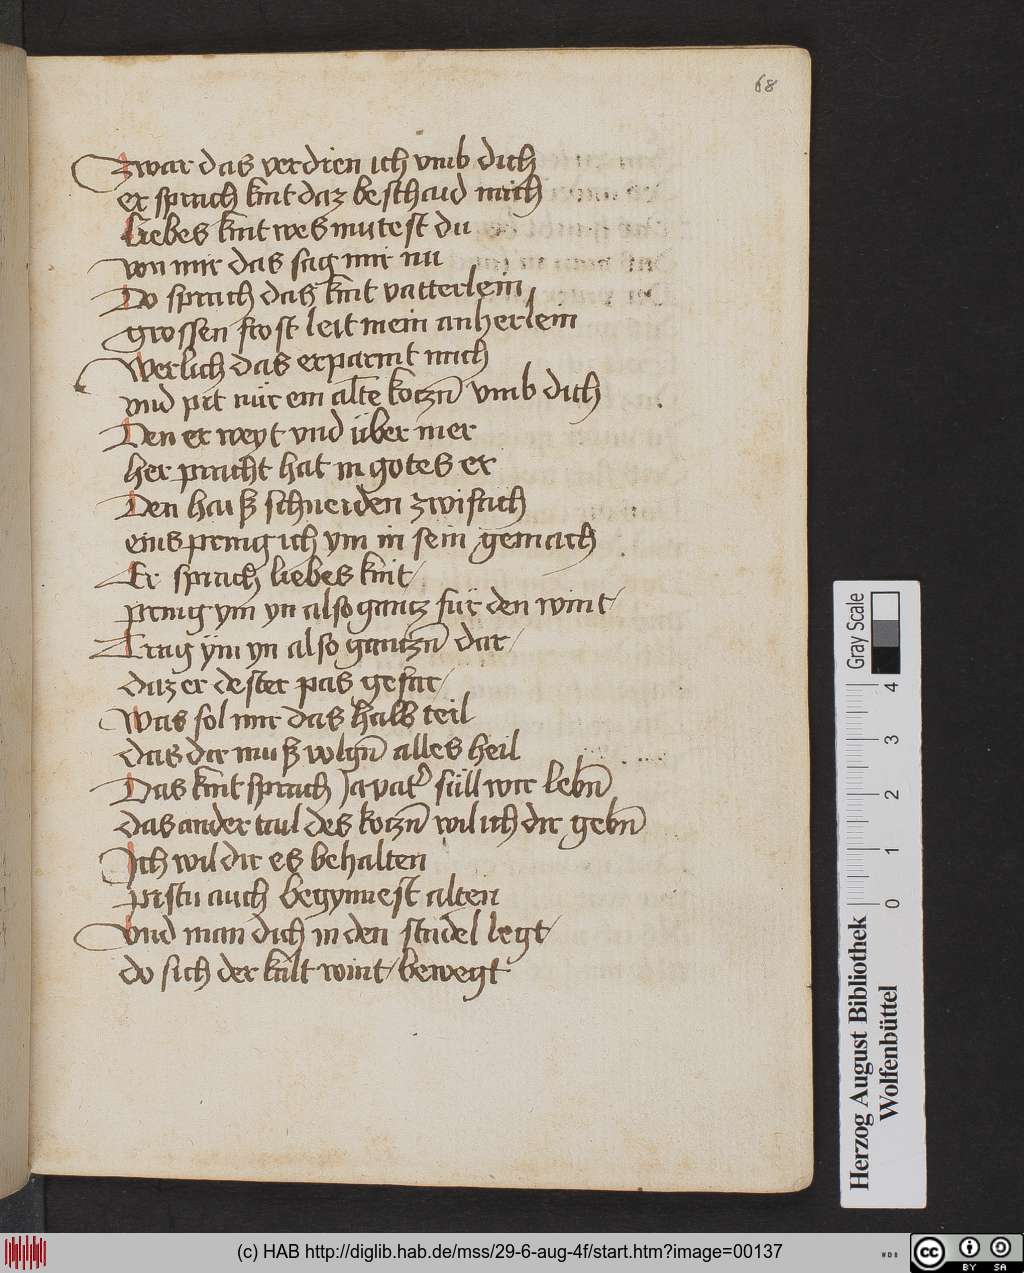 68
Zwar das verdien ich vmb dich
er sprach kint daz beschaid mich
Liebes kint wes mutest du
von mir das sag mir nu
Do sprach das kint vatterlein
grossen frost leit mein anherlein
Werlich das erparmt mich
vnd pit nür ein alte koczn̄ vmb dich
Den er weyt vnd über mer
her pracht hat in gotes er
Den haiß schneiden zwifach
eins pring ich ym in sein gemach
Er sprach liebes kint/
pring ym yn also gantz für den wint/
Trag ÿm yn also gantzn̄ dar/
daz er dester pas gefar/
Was sol mir das halb teil
das dir muß volgn̄ alles heil
Das kint sprach Ja vat̕ süll wir lebn̄
das ander tail des koczn̄ wil ich dir gebn̄
Ich wil dir es behalten
pistu auch begynnest alten
Vnd man dich in den stadel legt/
do sich der kalt wint/bewegt
Gray Scale
0 1 2 3 4
Herzog August Bibliothek
Wolfenbüttel
(c) HAB http://diglib.hab.de/mss/29-6-aug-4f/start.htm?image=00137
WDB
cc
BY SA